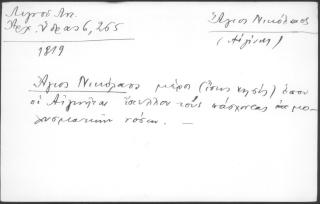 Λιγνοῦ Ἀν.
Ἀρχ. Ὕδρας 6, 265
1819
Ἅγιος Νικόλαος
(Αἰγίνης)
Ἅγιος Νικόλαος μέρος (ἴσως νησίς) ὅπου
οἱ Αἰγινῆται ἔστελλον τοὺς πάσχοντας ἀπὸ μο-
λυσματικὴν νόσον. —